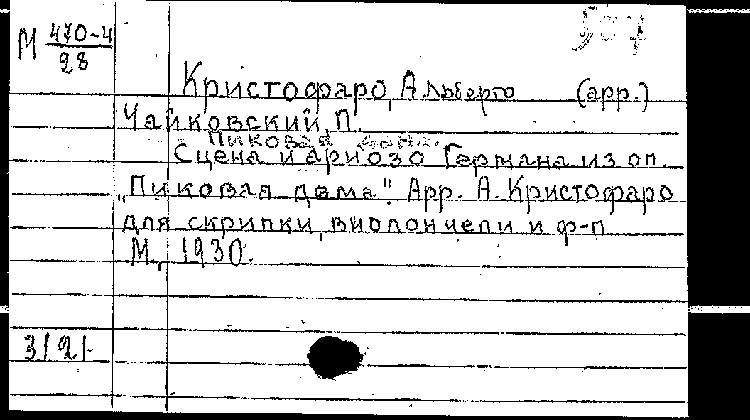 М 470-4
28
507
Кристофаро, Альберто (арр.)
Чайковский, П.
Пиковая дама.
Сцена и ариозо Германа из оп.
"Пиковая дама". Арр. А. Кристофаро
для скрипки, виолончели и ф-п
М., 1930.
3/2/-